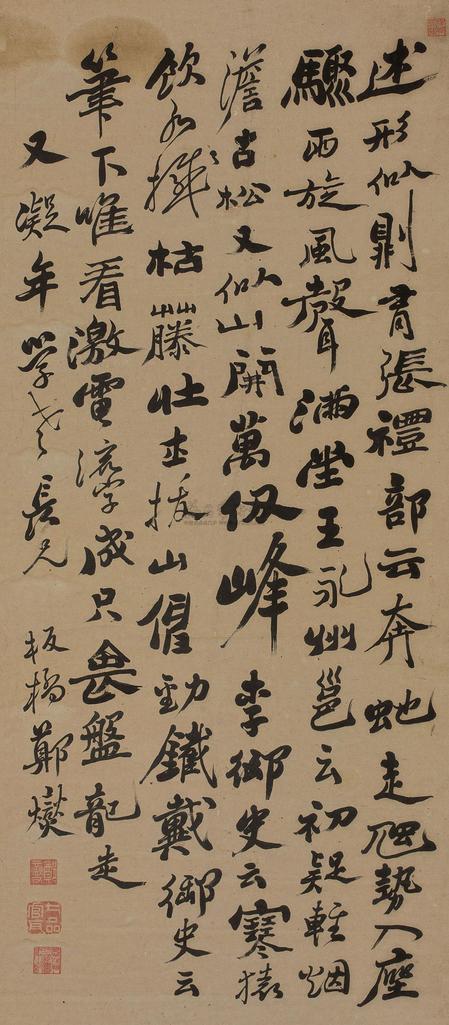 述形似則有張禮部云奔虵走虺勢入座
驟雨旋風聲滿堂王永州邕云初疑輕烟
澹古松又似山開萬仞峰李御史云寒猿
飲水撼枯藤壯士拔山伸勁鐵戴御史云
筆下唯看激電流字成只畏盤龍走
又凝年學老長兄
板橋鄭燮